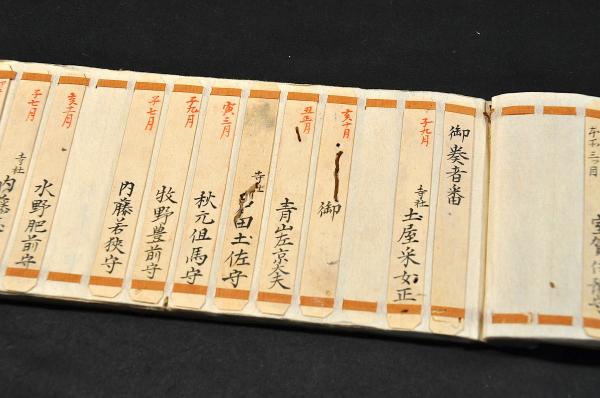 御奏者番
子九月
寺社
土屋采女正
亥十月
御
丑正月
青山左京大夫
寅三月
寺社
田土佐守
子九月
秋元但馬守
牧野豊前守
子七月
内藤若狭守
亥十一月
子七月
水野肥前守
寺社
内藤